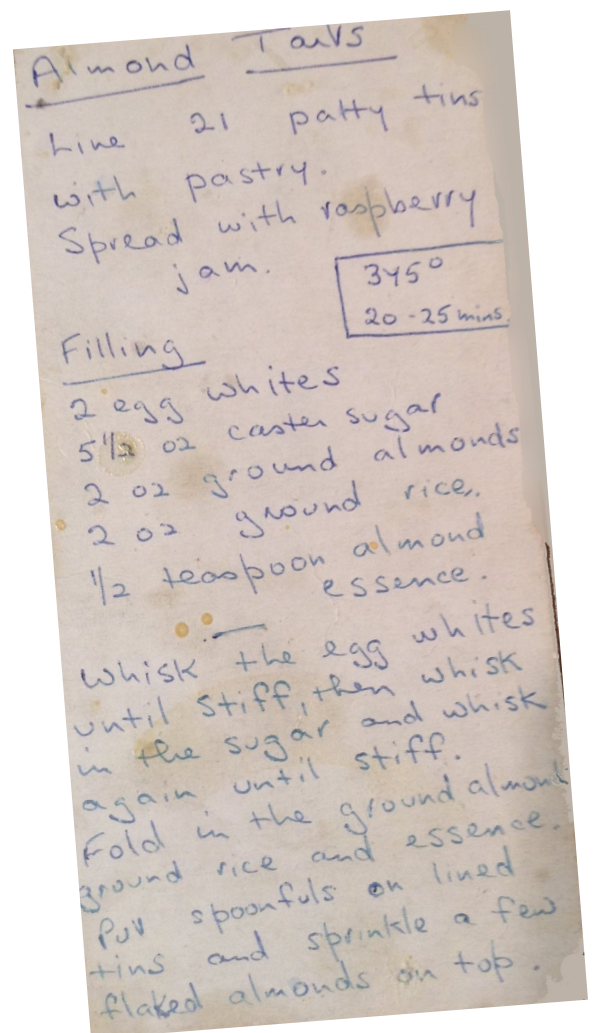 Almond Tarts
Line 21 patty tins
with pastry.
Spread with raspberry
jam.
345°
20-25 mins.
Filling
2 egg whites
5 1/2 oz caster sugar
2 oz ground almonds
2 oz ground rice.
1/2 teaspoon almond
essence.
Whisk the egg whites
until stiff, then whisk
in the sugar and whisk
again until stiff.
Fold in the ground almond
ground rice and essence.
Put spoonfuls on lined
tins and sprinkle a few
flaked almonds on top.